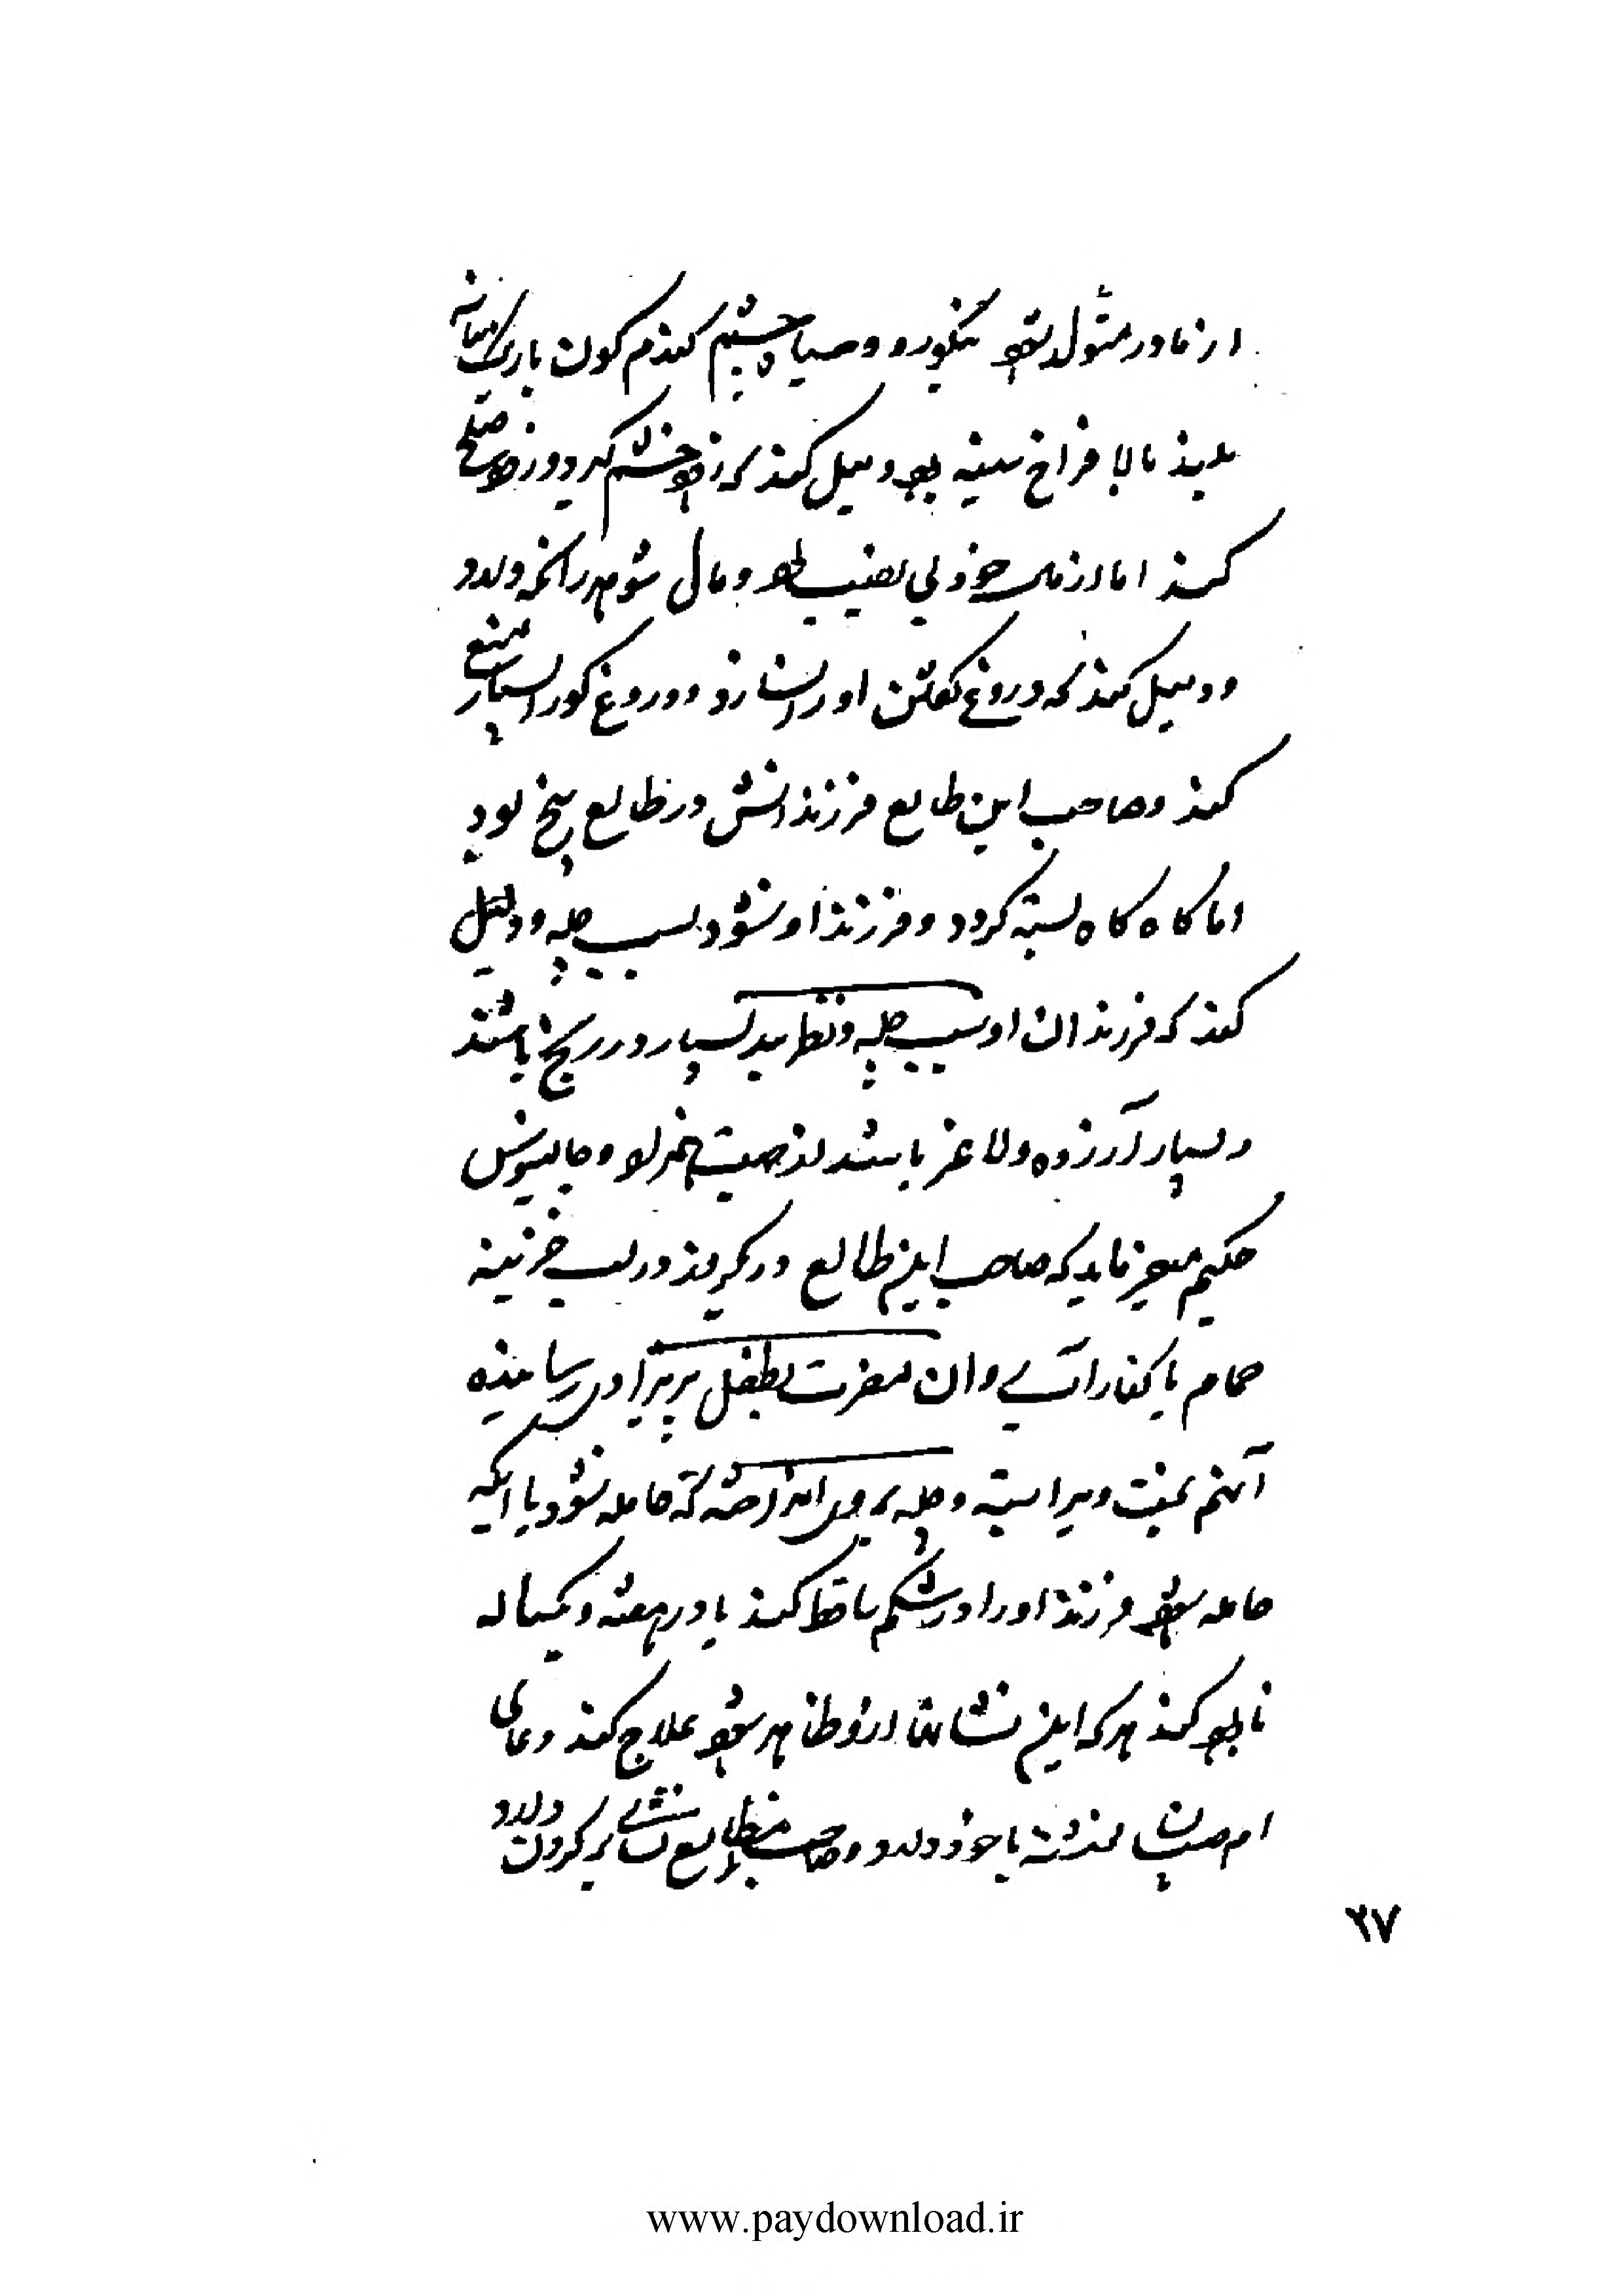 از مادر متولد شود نیکورو و سیاه چشم گندم گون باریک میانه
بلند بالا فراخ سینه بود و میل کند که زود خشم گیرد و زود صلح
کند اما از مال خود بی نصیب بود و مال شوم دارد
و میل کند که دروغ گفتن او را نسازد و دروغ گو را بسیار منع
کند و صاحب این طالع فرزندانش در طالع پنج بود
اما گاه گاه بسته گردد و فرزند او نشود بسبب چله و دلیل
کند که فرزندان او بسبب چله و نظر بد بسیار در رنج باشند
و بسیار آرزده و لاغر باشند و جالینوس
حکیم میفرماید که صاحب این طالع در لب خزینه
حمام یا کنار آب و ان مضرت بطفل پریزاد رسانیده
آنهم ویرا بسته و چله بروی انداخته که حامله نشود یا اینکه
حامله شود فرزند او را در شکم ساقط کند یا در هفته و یکساله
نابود کند هر که این نشانها از او ظاهر شود علاج کند دعای
ام صبیان نوشته با خود دارد و صاحب طالع نشانی بر گردن دارد
۲۷
www.paydownload.ir